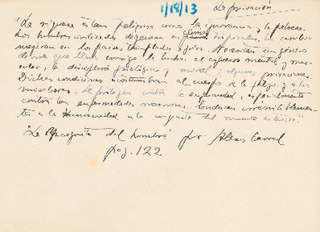 1/18/13 La privación
"La riqueza es tan peligrosa como la ignorancia y la pobreza.
Los hombres civilizados degeneran en climas tropicales, en cambio
mejoran en los países templados y fríos. Necesitan un género
de vida que lleve consigo la lucha, el esfuerzo mental y mus-
cular, la disciplina fisiológica y moral y algunas privaciones.
Dichas condiciones acostumbran al cuerpo a la fatiga y a los
sinsabores. Lo protegen contra la enfermedad, especialmente
contra las enfermedades nerviosas. Conducen irresistiblemen-
te a la humanidad a la conquista del mundo exterior."
"La Incógnita del Hombre" por Alexis Carrel
pag. 122